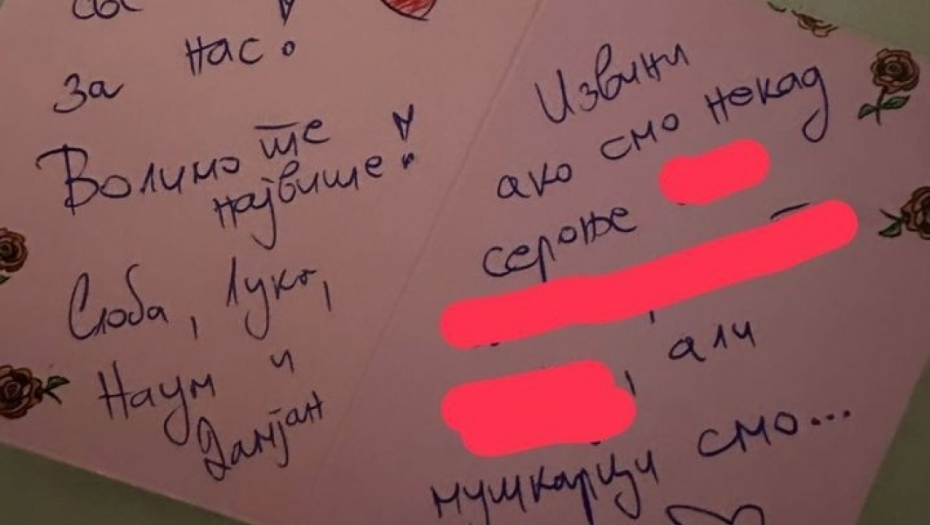 за нас!
Волимо те
највише!
Слоба, Лука,
Наум и
Дамјан
Извини
ако смо некад
сероње
, али
мушкарци смо...